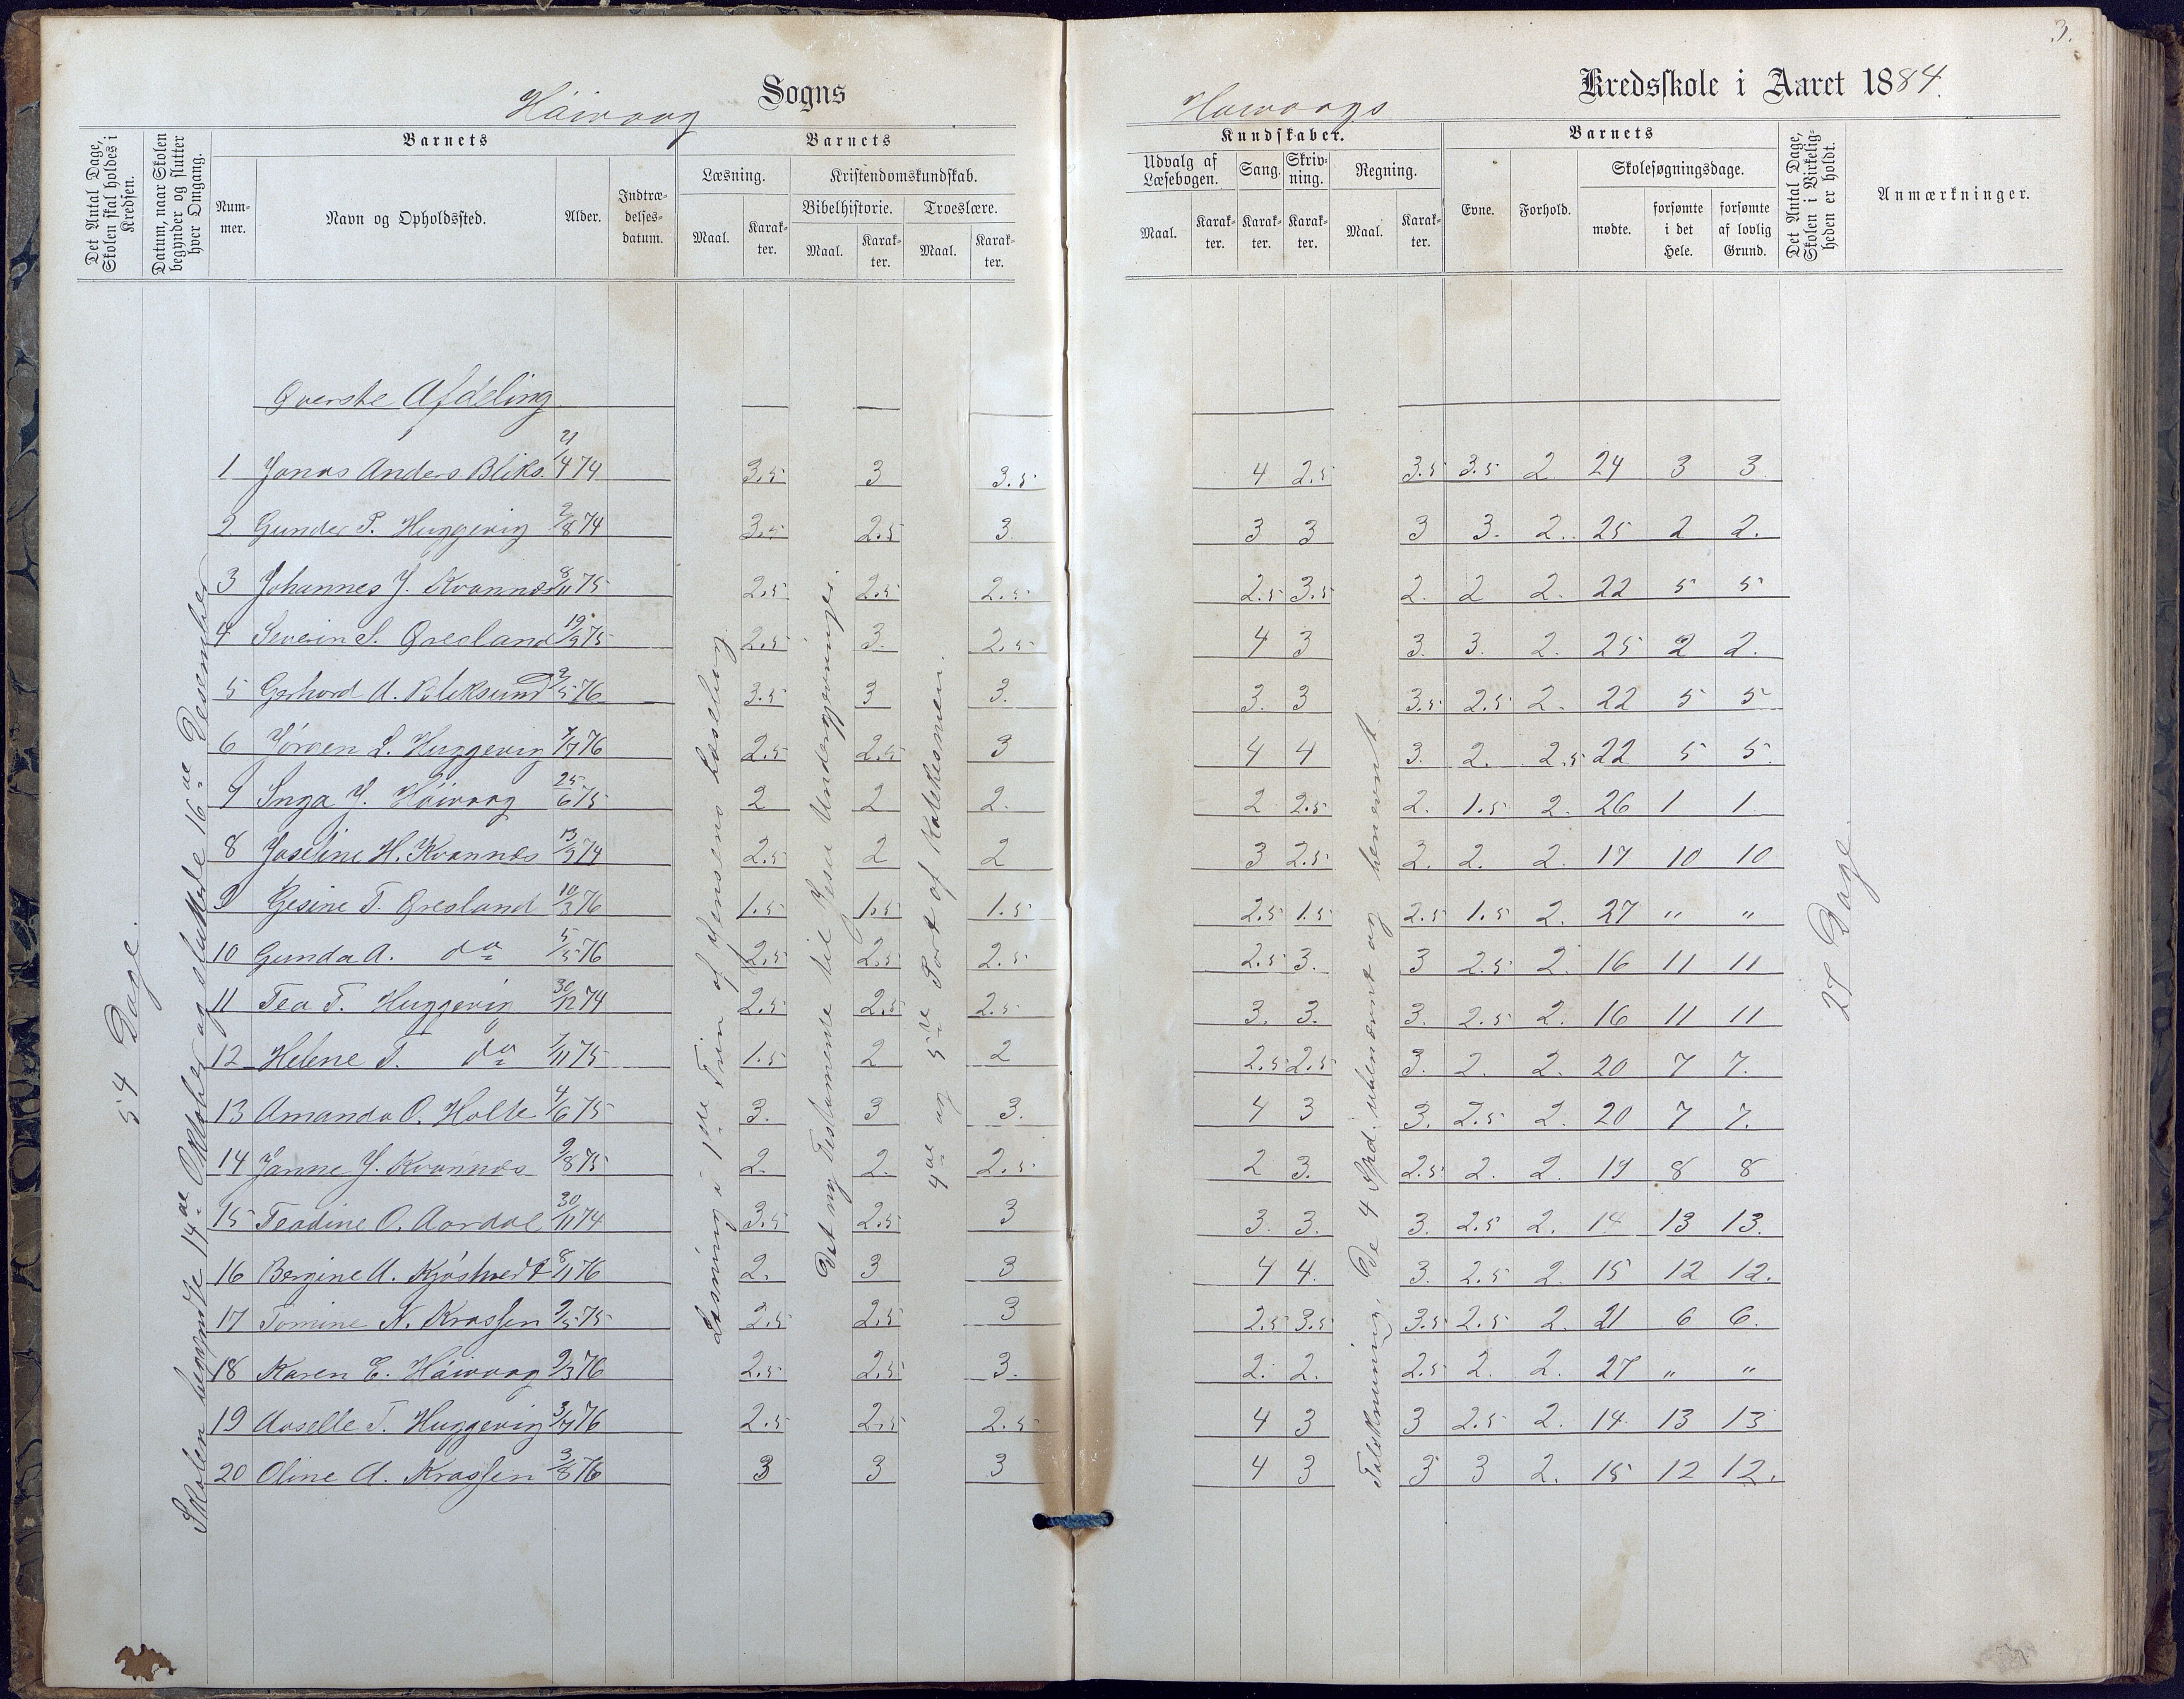 3.
Høivaag Sogns
Høivaags Kredsskole i Aaret 1884.
Det Antal Dage, Skolen skal holdes i Kredsen.
Datum, naar Skolen begynder og slutter hver Omgang.
Barnets
Nummer.
Navn og Opholdssted.
Alder.
Indtrædelsesdatum.
Barnets
Læsning.
Maal.
Karakter.
Kristendomskundskab.
Bibelhistorie.
Maal.
Karakter.
Troeslære.
Maal.
Karakter.
Kundskaber.
Udvalg af Læsebogen.
Maal.
Karakter.
Sang.
Karakter.
Skrivning.
Karakter.
Regning.
Maal.
Karakter.
Barnets
Evne.
Forhold.
Skolesøgningsdage.
mødte.
forsømte i det Hele.
forsømte af lovlig Grund.
Det Antal Dage, Skolen i Virkeligheden er holdt.
Anmærkninger.
54 Dage.
Skolen begyndte 14de Oktober og sluttede 16de Desember
Øverste Afdeling
Læsning i 1ste Trin af Jensens Læsebog
Det ny Testamente til Jesu
4de og 5te Part af Katekesmen.
De 4 Spd. ubenævnt og benævnt
27 Dage.
1 Jonas Anders Bliks. 21/4 74 3.5 3 3.5 4 2.5 3.5 3.5 2 24 3 3.
2 Gunder P. Huggevig 2/8 74 3.5 2.5 3. 3 3 3 3. 2. 25 2 2.
3 Johannes J. Kvannes 8/11 75 2.5 2.5 2.5 2.5 3.5 2. 2 2. 22 5 5
4 Severin S. Øresland 19/9 75 2.5 3. 2.5 4 3 3. 3. 2. 25 2 2.
5 Gerhard A. Bliksund 2/5 76 3.5 3 3. 3. 3 3.5 2.5 2. 22 5 5
6 Jørgen L. Huggevig 7/7 76 2.5 2.5 3 4 4 3. 2. 2.5 22 5 5.
7 Inga J. Høivaag 25/6 75 2 2 2. 2 2.5 2. 1.5 2. 26 1 1
8 Joseline H. Kvannes 13/9 74 2.5 2 2 3 2.5 2. 2. 2. 17 10 10
9 Gesine T. Øresland 10/3 76 1.5 1.5 1.5 2.5 1.5 2.5 1.5 2. 27 " "
10 Gunda A. do 5/5 76 2.5 2.5 2.5 2.5 3. 3 2.5 2. 16 11 11
11 Tea T. Huggevig 30/12 74 2.5 2.5 2.5 3. 3. 3. 2.5 2. 16 11 11
12 Helene T. do 7/11 75 1.5 2 2 2.5 2.5 3. 2. 2. 20 7 7.
13 Amanda O. Holte 4/6 75 3. 3 3. 4 3 3. 2.5 2. 20 7 7.
14 Janne J. Kvannes 9/8 75 2. 2. 2.5 2 3. 2.5 2. 2. 19 8 8
15 Teodine O. Aardal 30/11 74 3.5 2.5 3 3. 3. 3. 2.5 2. 14 13 13.
16 Bergine A. Kjøstvedt 8/11 76 2. 3 3 4 4. 3. 2.5 2. 15 12 12.
17 Tomine N. Krossen 2/5 75 2.5 2.5 3 2.5 3.5 3.5 2.5 2. 21 6 6.
18 Karen E. Høivaag 9/3 76 2.5 2.5 3. 2. 2. 2.5 2. 2. 27 " "
19 Aaselle T. Huggevig 3/7 76 2.5 2.5 2.5 4 3 3 2.5 2. 14. 13 13
20 Oline A. Krossen 3/8 76 3 3 3 4 3 3 3 2. 15 12 12.